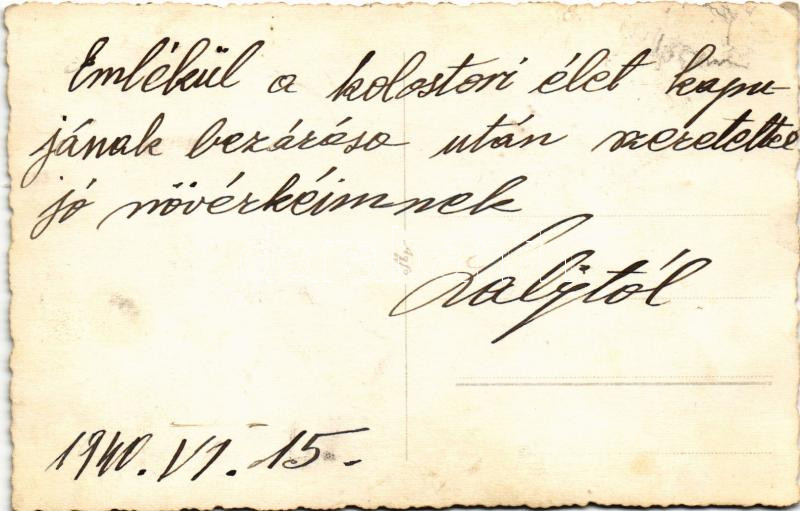 Emlékül a kolostori élet kapu-
jának bezárása után szeretettel
jó növérkéimnek
Lalytól
1940. VI. 15.